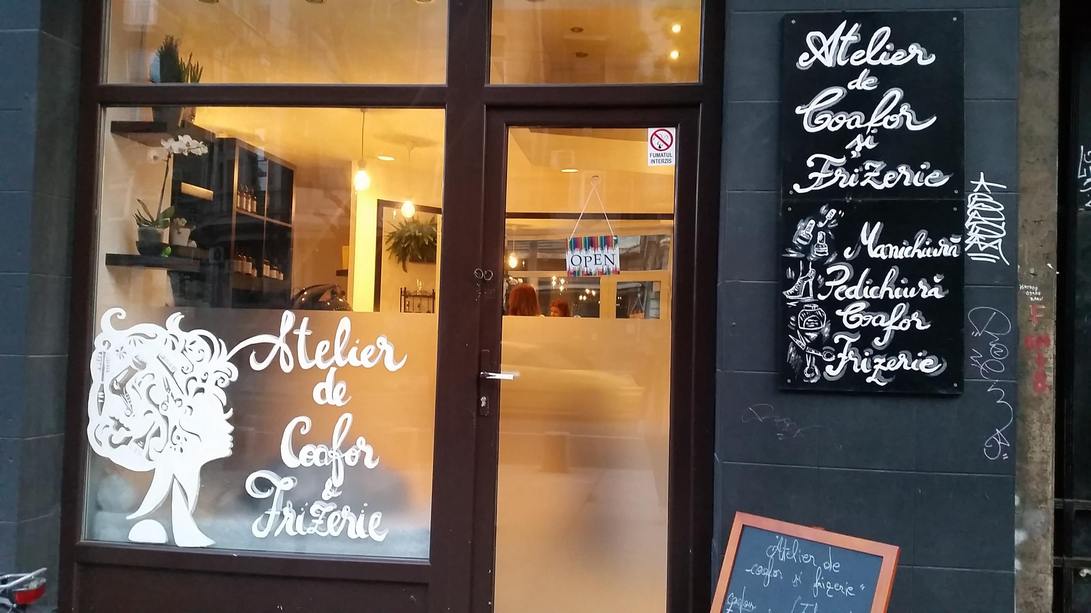 Atelier
de
Coafor
&
Frizerie
FUMATUL
INTERZIS
OPEN
Atelier
de
Coafor
și
Frizerie
Manichiură
Pedichiură
Coafor
Frizerie
"Atelier de
coafor și frizerie"